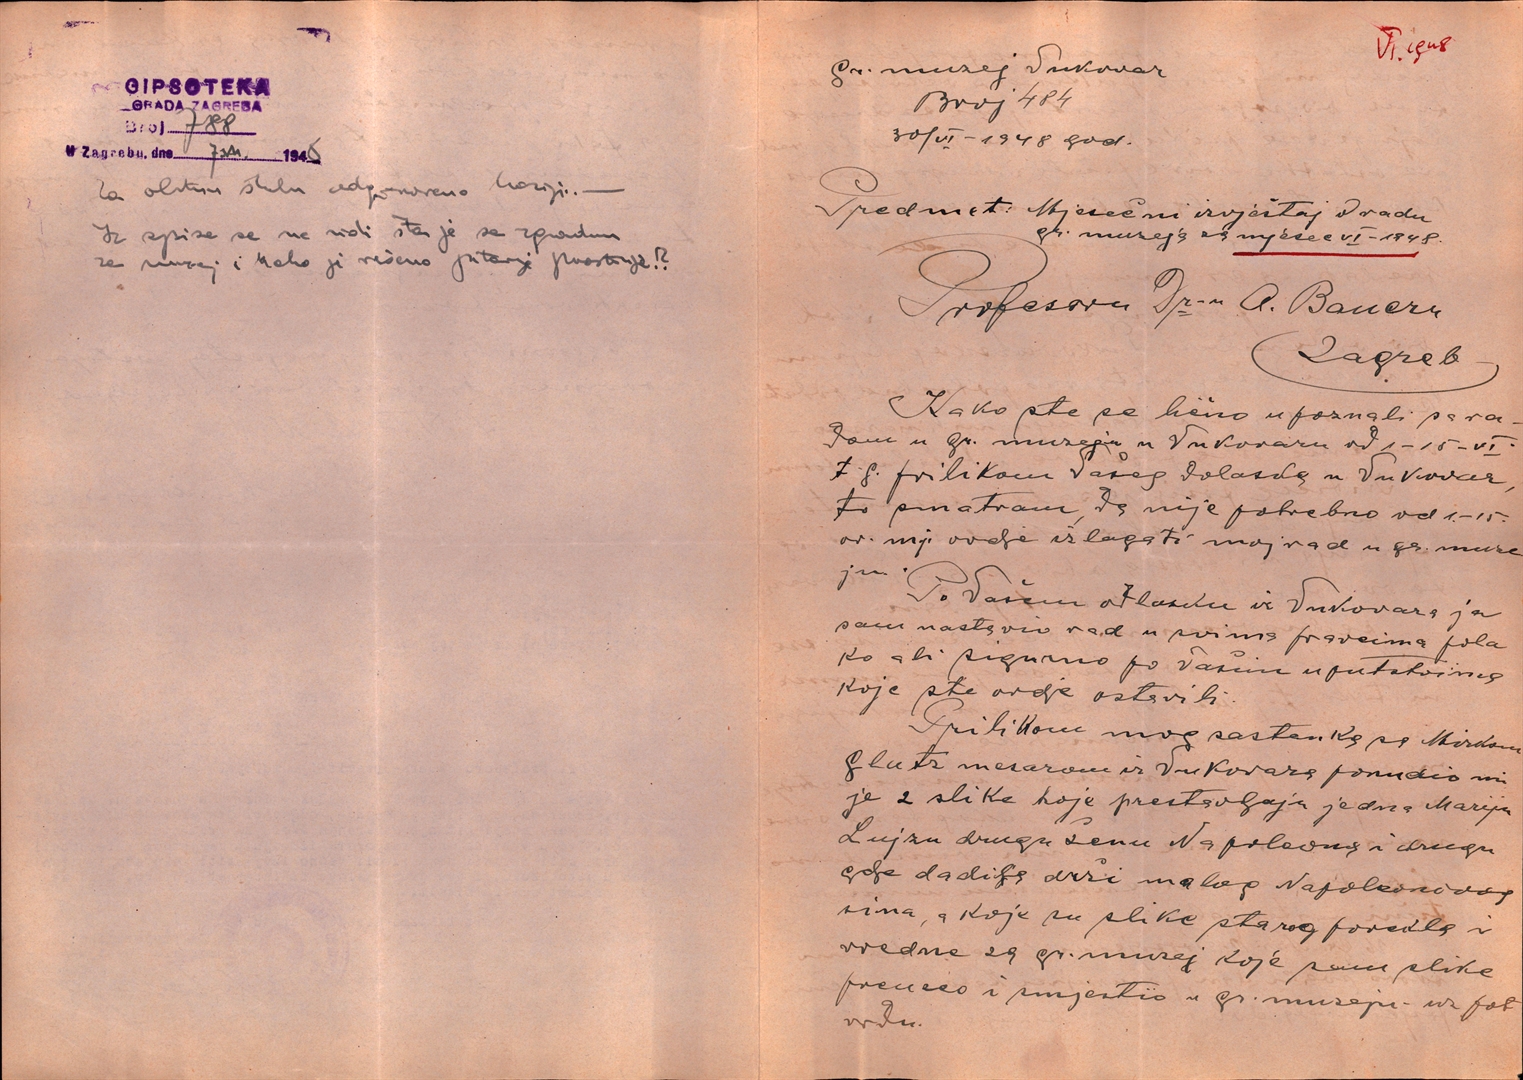 GIPSOTEKA
GRADA ZAGREBA
Broj 788
U Zagrebu, dne 7.VII. 1948
Iz spisa se ne vidi šta je sa zgradom
za muzej i kako je riješeno pitanje prostorija!?
VI. 1948
gr. muzej Vukovar
Broj 484
30/VI-1948 god.
Predmet: Mjesečni izvještaj o radu
gr. muzeja za mjesec VI-1948.
Profesoru Dr-u A. Baueru
Zagreb
Kako ste se lično upoznali sa ra-
dom u gr. muzeju u Vukovaru od 1-15-VI-
t.g. prilikom Vašeg dolaska u Vukovar,
to smatram, da nije potrebno od 1-15.
ov. mj. ovdje izlagati moj rad u gr. muze
ju.
Po Vašem odlasku iz Vukovara ja
sam nastavio rad u svima pravcima pola
ko ali sigurno po Vašim uputstvima
koje ste ovdje ostavili.
Prilikom mog sastanka sa Mirkom
Glutz mesarom iz Vukovara ponudio mi
je 2 slike koje prestavljaju jedna Mariju
Lujzu drugu ženu Napoleona i drugu
gdje dadilja drži malog Napoleonovog
sina, a koje su slike starog porekla i
vredne za gr. muzej koje sam slike
preneo i smjestio u gr. muzeju - uz pot
vrdu.